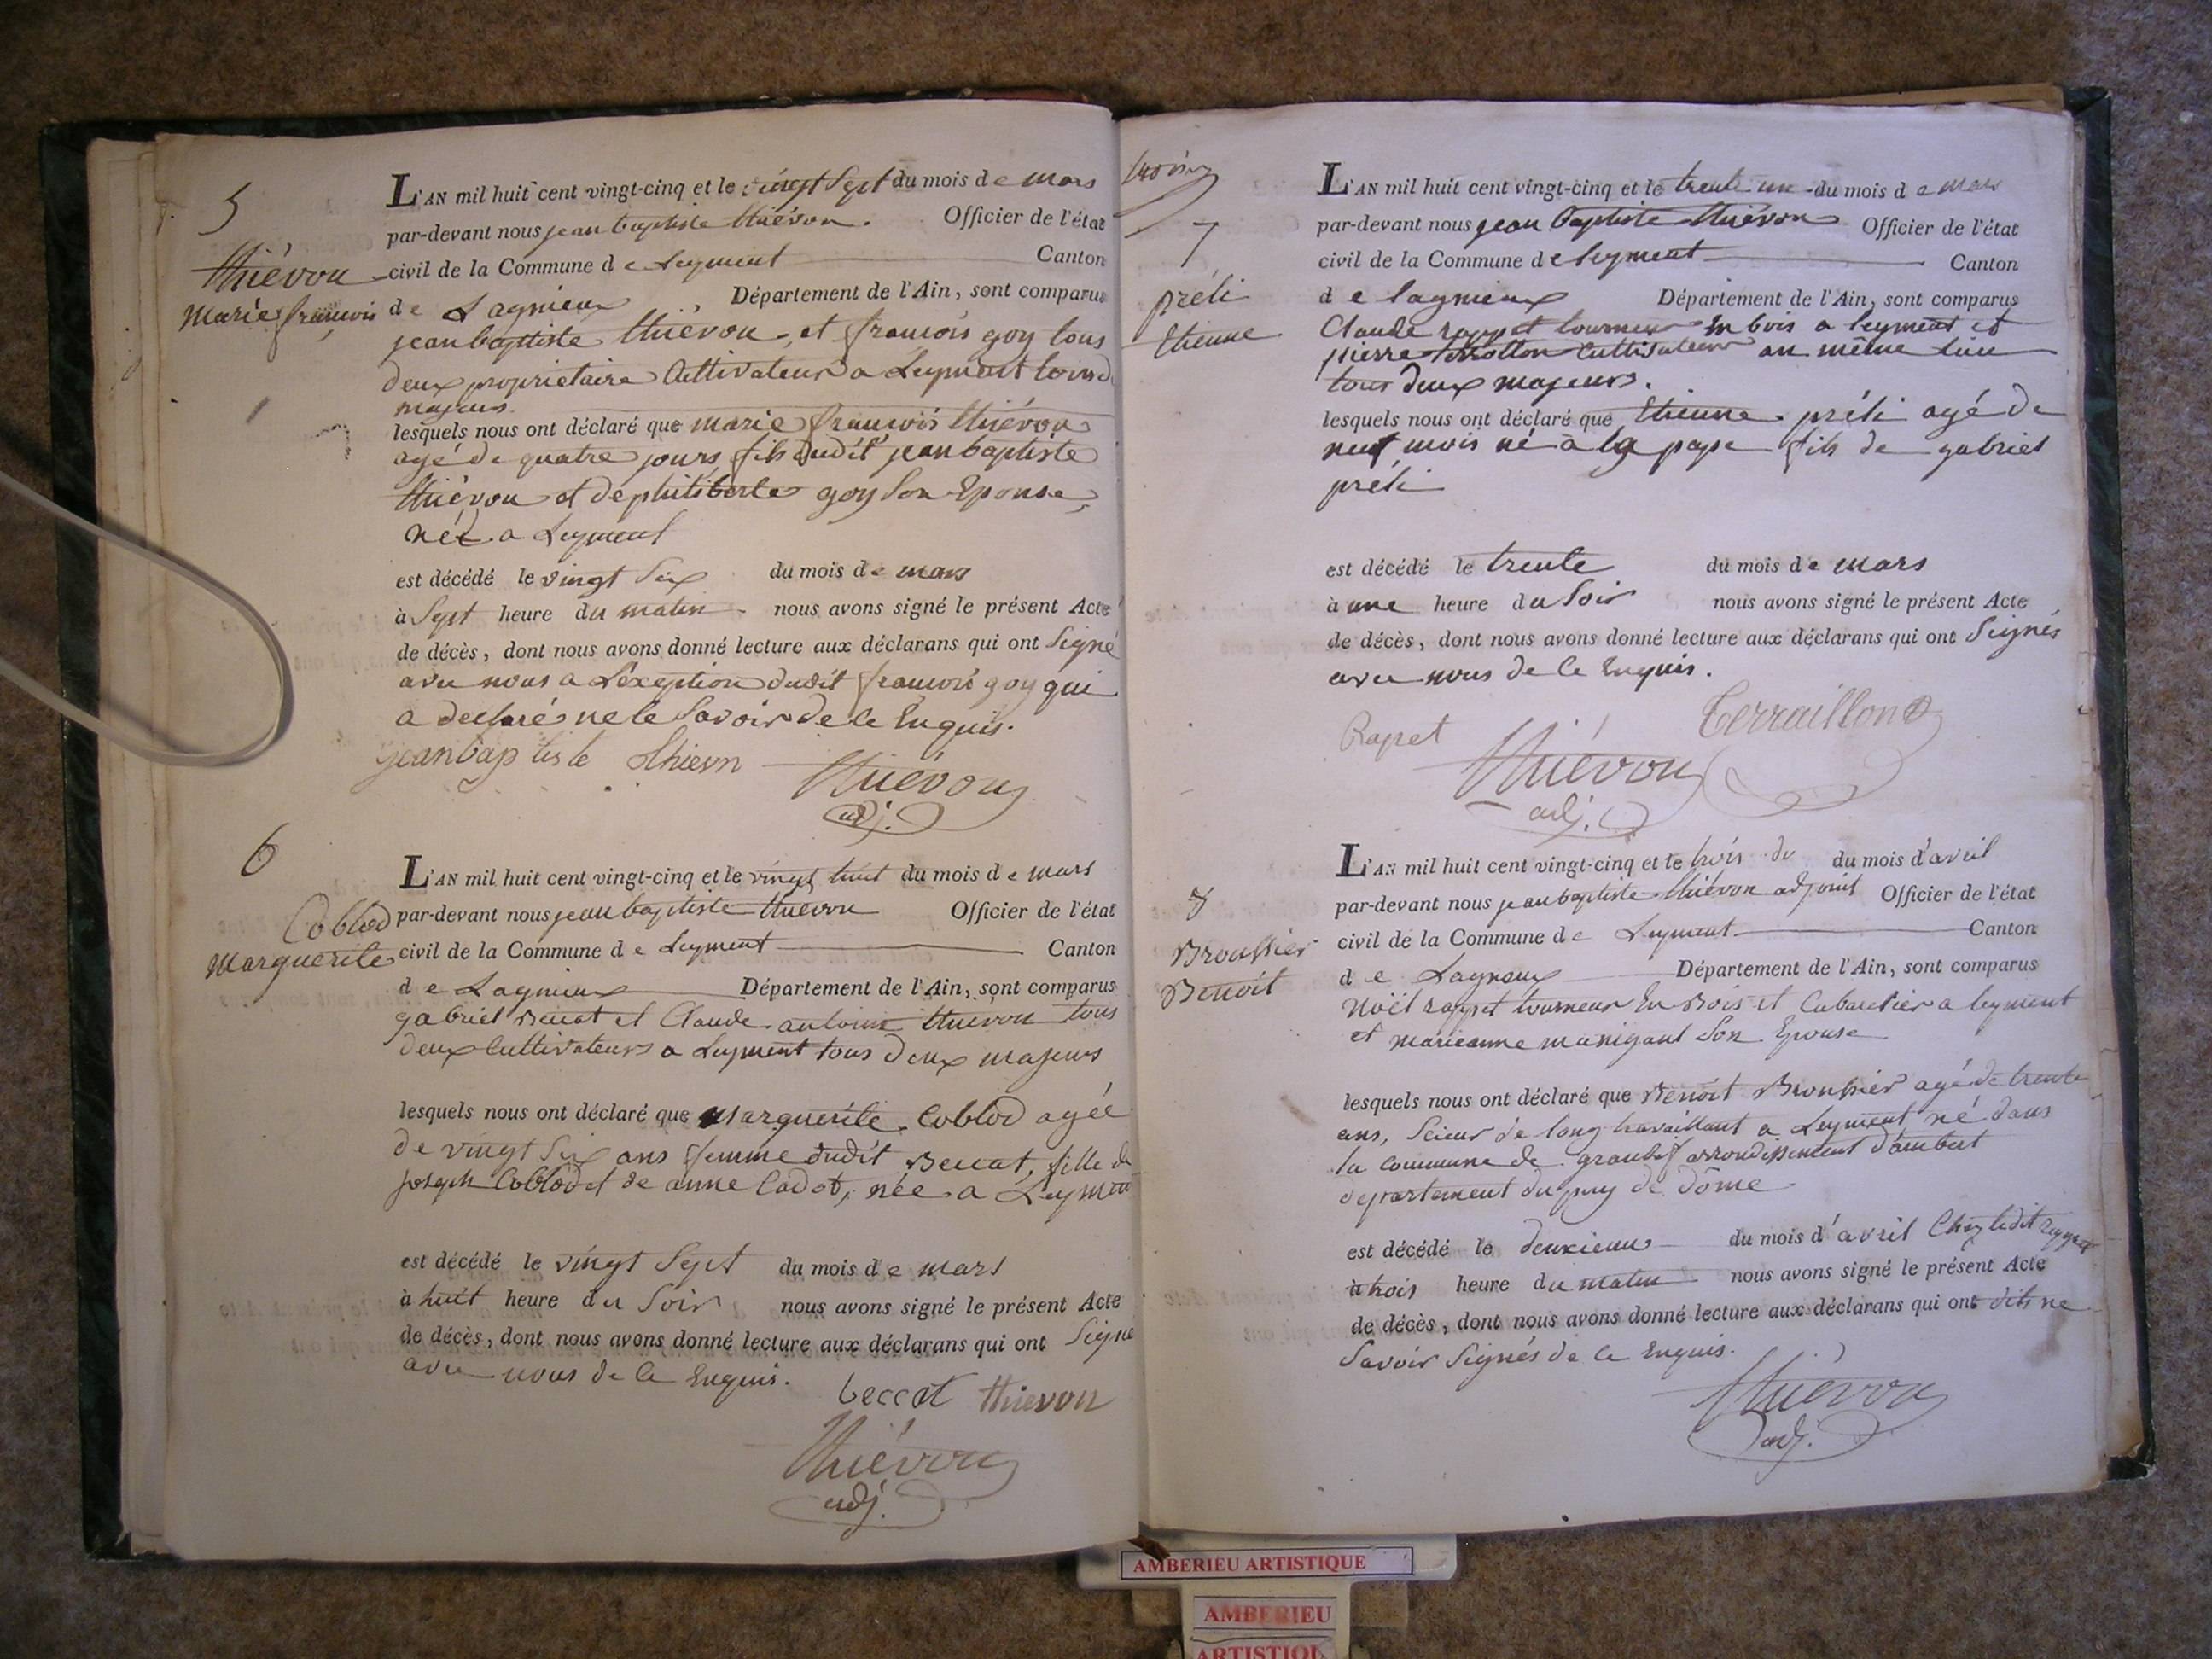 5
Thiévon
Marie françois
L'AN mil huit cent vingt-cinq et le vingt Sept du mois de mars
par-devant nous jean baptiste thiévon. Officier de l'état
civil de la Commune de Leyment Canton
de Lagnieu, Département de l'Ain, sont comparus
jean baptiste thiévon, et françois goy tous
deux propriétaire Cultivateurs a Leyment tous d
majeurs.
lesquels nous ont déclaré que marie françois thiévon
agé de quatre jours fils dudit jean baptiste
thiévon et de philiberte goy Son Epouse,
né a Leyment
est décédé le vingt Six du mois de mars
à Sept heure du matin nous avons signé le présent Acte
de décès, dont nous avons donné lecture aux déclarans qui ont Signé
avec nous a L'exeption dudit françois goy qui
a declaré ne le Savoir de ce Enquis.
jeanbaptiste thievn Thiévon
adj.
6
Coblod
Marguerite
L'AN mil huit cent vingt-cinq et le vingt huit du mois de mars
par-devant nous jean baptiste thiévon Officier de l'état
civil de la Commune de Leyment Canton
de Lagnieux Département de l'Ain, sont comparus
gabriel Beccat et Claude antoine thiévon tous
deux Cultivateurs a Leyment tous deux majeurs
lesquels nous ont déclaré que Marguerite Coblod agée
de vingt Six ans femme dudit Beccat, fille de
joseph Coblod et de anne Cadot, née a Leyment
est décédé le vingt Sept du mois de mars
à huit heure du Soir nous avons signé le présent Acte
de décès, dont nous avons donné lecture aux déclarans qui ont Signé
avec nous de ce Enquis.
beccat thievon
Thiévon
adj.
7
préli
Etienne
L'AN mil huit cent vingt-cinq et le trente un du mois de mars
par-devant nous jean Baptiste thiévon Officier de l'état
civil de la Commune de leyment Canton
de lagnieux Département de l'Ain, sont comparus
Claude rappet tourneur En bois a leyment et
pierre Cultivateur au même lieu
tous deux majeurs.
lesquels nous ont déclaré que Etienne préli agé de
neuf mois né à la pape fils de gabriel
préli
est décédé le trente du mois de mars
à une heure du Soir nous avons signé le présent Acte
de décès, dont nous avons donné lecture aux déclarans qui ont Signés
avec nous de ce Enquis.
Rapet Thiévon Terraillon
adj.
8
Broussier
Benoit
L'AN mil huit cent vingt-cinq et le trois du du mois d'avril
par-devant nous jean baptiste thiévon adjoint Officier de l'état
civil de la Commune de Leyment Canton
de Lagneux Département de l'Ain, sont comparus
Noël rappet tourneur En Bois et Cabaretier a leyment
et marieanne manigant Son Epouse
lesquels nous ont déclaré que Benoit Broussier agé de trente
ans, Scieur de long travaillant a Leyment né dans
la commune de grandif arrondissement d'ambert
departement du puy de Dôme
est décédé le deuxieme du mois d'avril Chez ledit rappet
à trois heure du matin nous avons signé le présent Acte
de décès, dont nous avons donné lecture aux déclarans qui ont dits ne
Savoir Signés de ce Enquis.
Thiévon
adj.
AMBERIEU ARTISTIQUE
AMBERIEU
ARTISTIQU